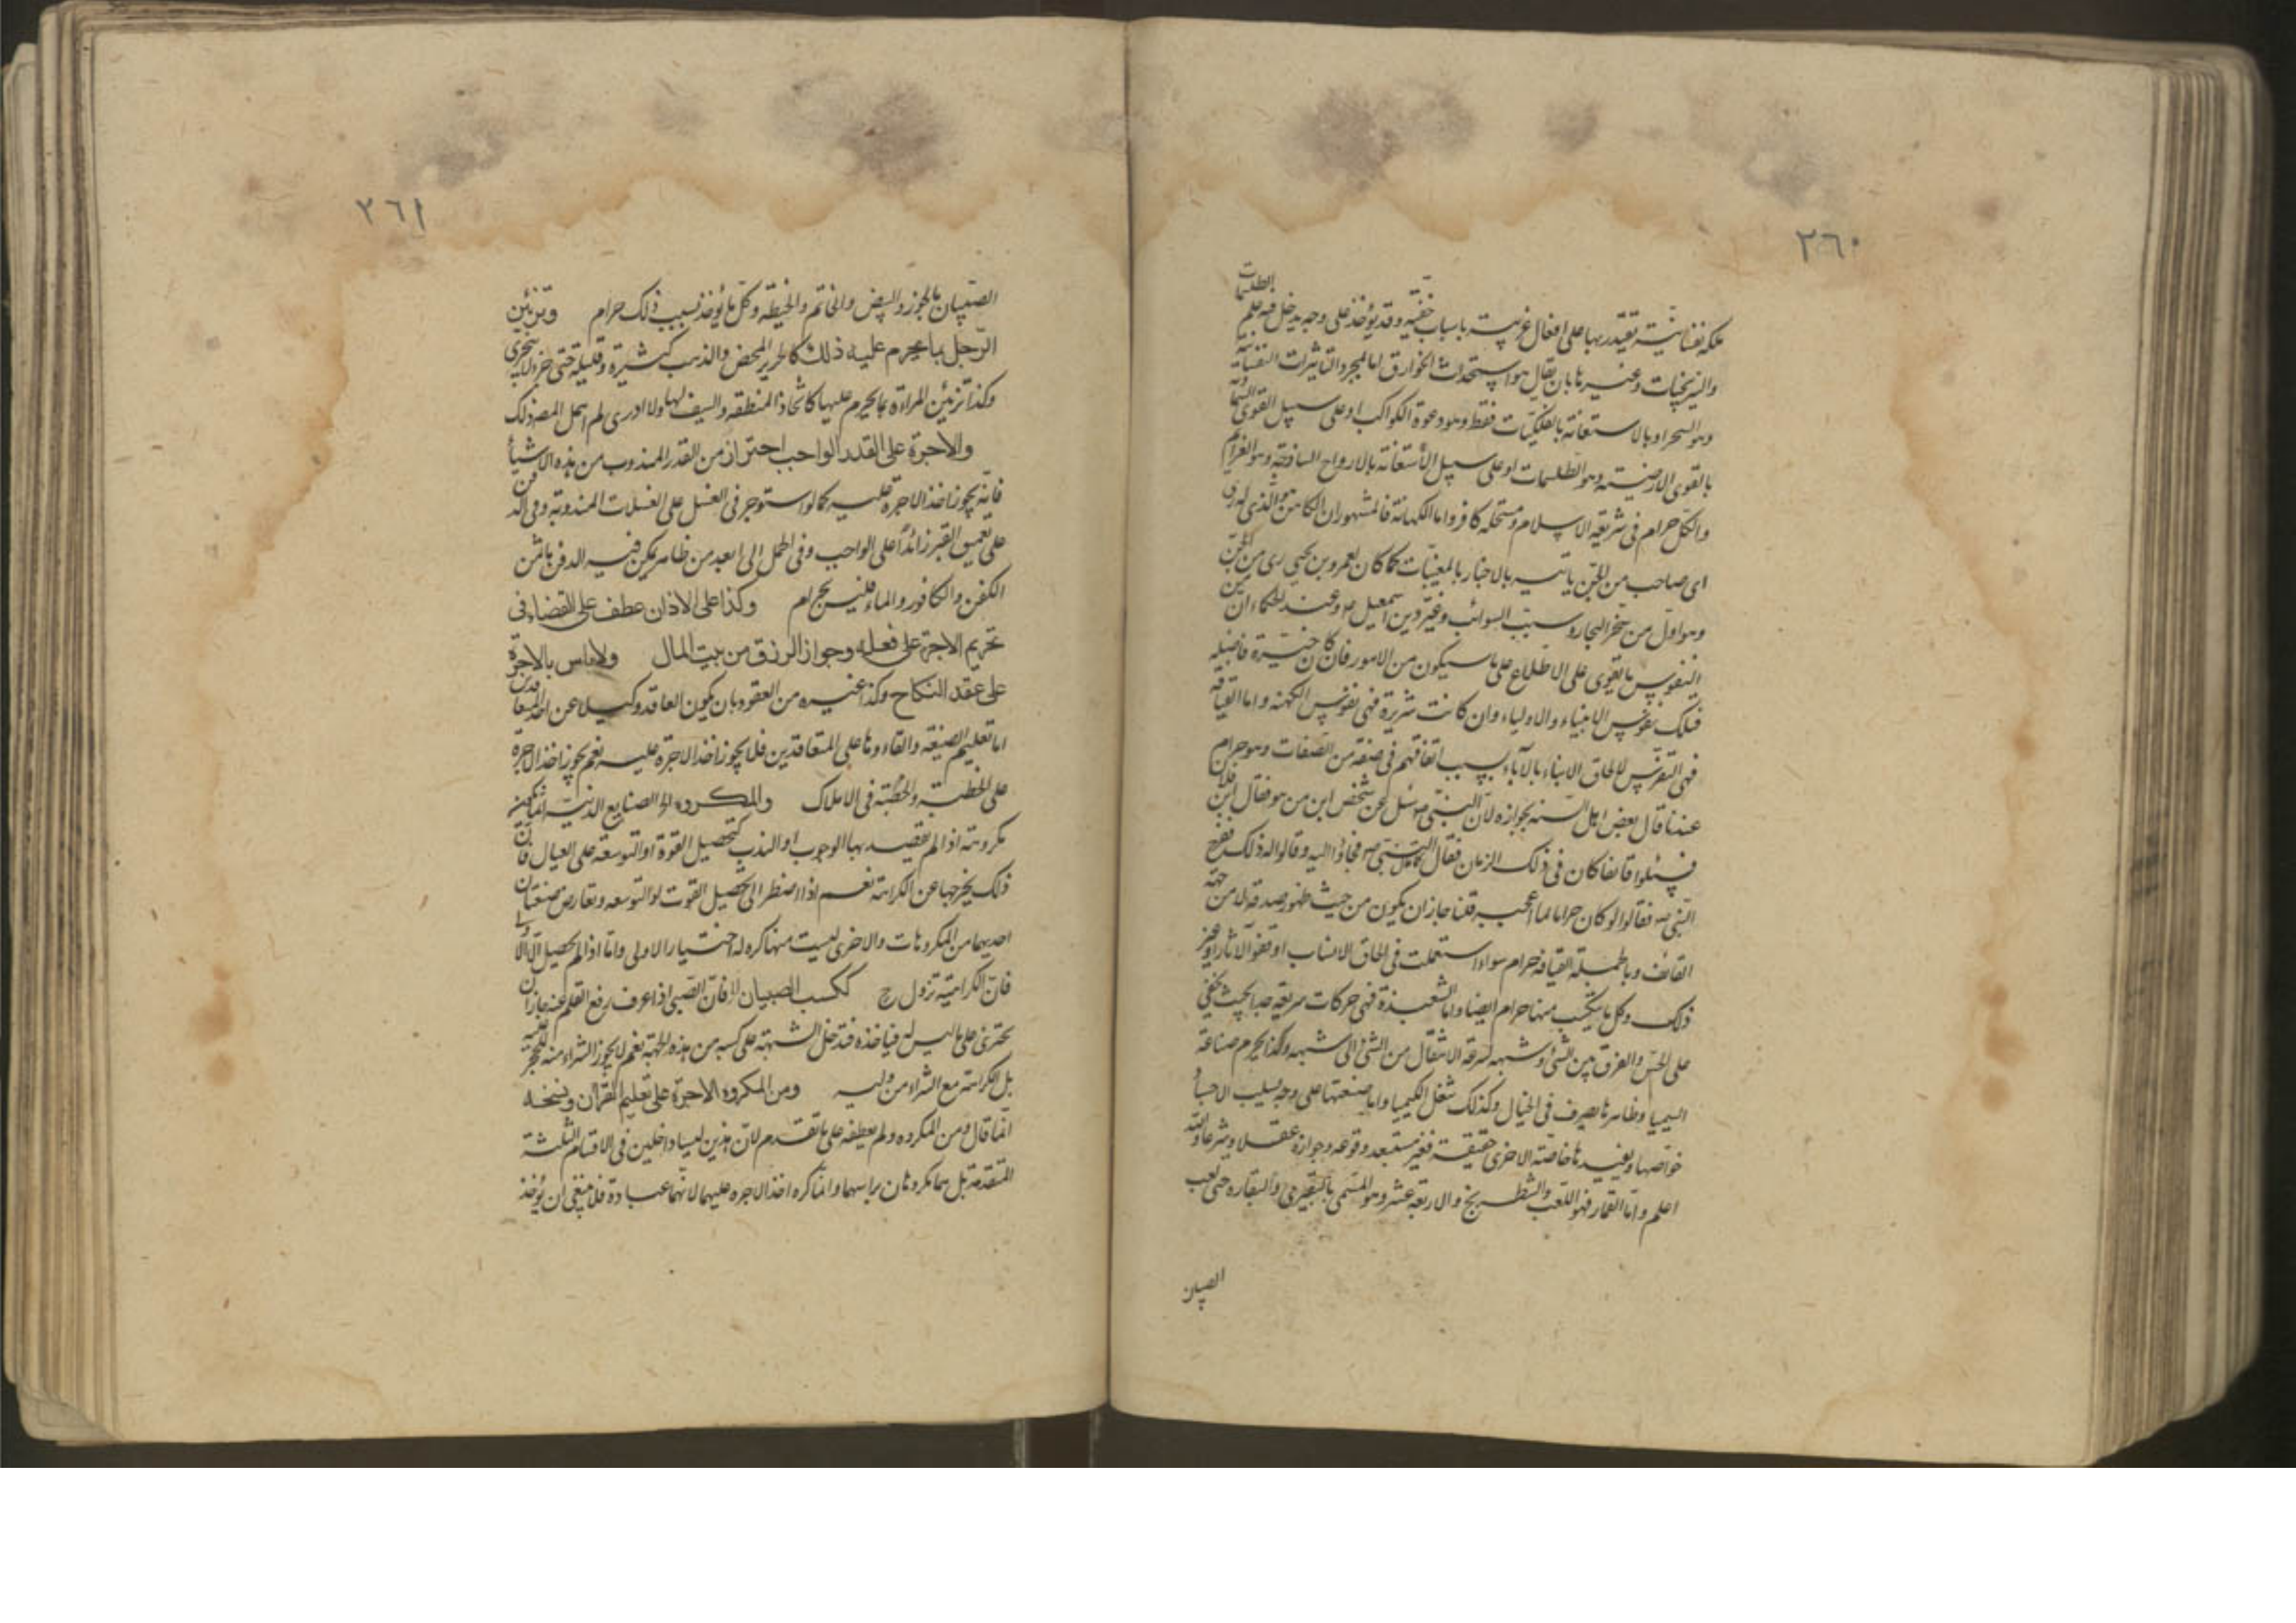 ٣٦٠
ملكة نفسانية يقتدر بها على افعال غريبة باسباب خفية وقد يؤخذ على وجه يدخل فيه علم الطلسمات
والنيرنجيات وغيرها بان يقال هو استحداث الخوارق اما لمجرد التأثيرات النفسانية
وهو السحر او بالاستعانة بالفلكيات فقط وهو دعوة الكواكب او على سبيل القوى السماوية
بالقوى الارضية وهو الطلسمات او على سبيل الاستعانة بالارواح الساذجة وهو العزائم
والكل حرام فى شريعة الاسلام ومستحله كافر واما الكهانة فالمشهور ان الكاهن هو الذى له رى
اى صاحب من الجن ياتيه بالاخبار بالمغيبات كما كان لعمرو بن يحيى رى من الجن
وهو اول من بحر البحار وسيب السوائب وغير دين اسمعيل ع وعند الحكماء ان من
النفوس ما تقوى على الاطلاع على ما سيكون من الامور فان كانت خيرة فاضلة
فتلك نفوس الانبياء والاولياء وان كانت شريرة فهى نفوس الكهنة واما القيافة
فهى التفرس لالحاق الابناء بالآباء بسبب اتفاقهم فى صفة من الصفات وهو حرام
عندنا قال بعض اهل السنه بجوازه لان النبى ص سئل عن شخص ابن من هو فقال ابن فلان
فسئلوا قائفا كان فى ذلك الزمان فقال كما قال النبى ص فجاؤا اليه وقالوا له ذلك ففرح
النبى ص فقالوا لو كان حراما لما اعجبه قلنا جاز ان يكون من حيث ظهور صدقه لا من جهة
القائف وبالجملة القيافة حرام سواء استعملت فى الحاق الانساب او قفو الآثار او غير
ذلك وكل ما يكتسب منها حرام ايضا واما الشعبذة فهى حركات سريعة جدا بحيث يخفى
على الحس والفرق بين الشئ وشبهه لسرعة الانتقال من الشئ الى شبهه وكذا يحرم صناعة
السيميا وظاهرها يصرف فى الخيال وكذلك شغل الكيميا واما صنعتها على وجه يسلب الاجساد
خواصها ويفيدها خاصة الاخرى حقيقة فغير مستبعد وقوعه وجوازه عقلا وشرعا والله
اعلم واما القمار فهو اللعب والشطرنج والاربعة عشر وهو المسمى بالبقيرى والبقاره حتى لعب
الصبيان
٣٦١
الصبيان بالجوز والبيض والخاتم والخيطه وكل ما يؤخذ بسبب ذلك حرام وتزيين
الرجل بما يحرم عليه ذلك كالحرير المحض والذهب كثيره وقليله حتى
وكذا تزيين المرأة بما يحرم عليها كاتخاذ المنطقه والسيف لها ولا ادرى لم اهمل المص ذلك
والاجرة على القدر الواجب احتراز من القدر المندوب من هذه الاشياء
فانه يجوز اخذ الاجرة عليه كما لو استوجر فى الغسل على الغسلات المندوبة وفى الدفن
على تعميق القبر زائدًا على الواجب وفى الحمل الى ابعد من ظاهر يمكن فيه الدفن باثمن
الكفن والكافور والماء فليس بحرام وكذا على الاذان عطف على القضاء فى
تحريم الاجرة على فعله وجواز الرزق من بيت المال ولا باس بالاجرة
على عقد النكاح وكذا غيره من العقود بان يكون العاقد وكيلا عن احد المتعاقدين
اما تعليم الصيغة والقاءها على المتعاقدين فلا يجوز اخذ الاجرة عليه نعم يجوز اخذ الاجرة
على الخطبة والخطبة فى الاملاك والمكروه الخ الصنايع الدنية انما يكون
مكروهة اذا لم يقصد بها الوجوب او الندب كتحصيل القوة او التوسعة على العيال فان
ذلك يخرجها عن الكراهة نعم اذا اضطر الى تحصيل القوت او التوسعه وتعارض صنعتان
احديهما من المكروهات والاخرى ليست منها كره له اختيار الاولى واما اذا لم يحصل الا
فان الكراهية تزول ح ككسب الصبيان الخ فان الصبى اذا عرف رفع القلم عنه جاز ان
يجترئ على ما ليس له فياخذه فتدخل الشبهة على كسبه من هذه الجهة نعم لا يجوز الشراء منه
بل الكراهة مع الشراء من وليه ومن المكروه الاجرة على تعليم القرآن ونسخه
انما قال ومن المكروه ولم يعطفه على ما تقدم لان هذين ليسا داخلين فى الاقسام الثلثة
المتقدمة بل هما مكروهان براسهما وانما كره اخذ الاجره عليهما لانهما عبادة فلا ينبغى ان يؤخذ